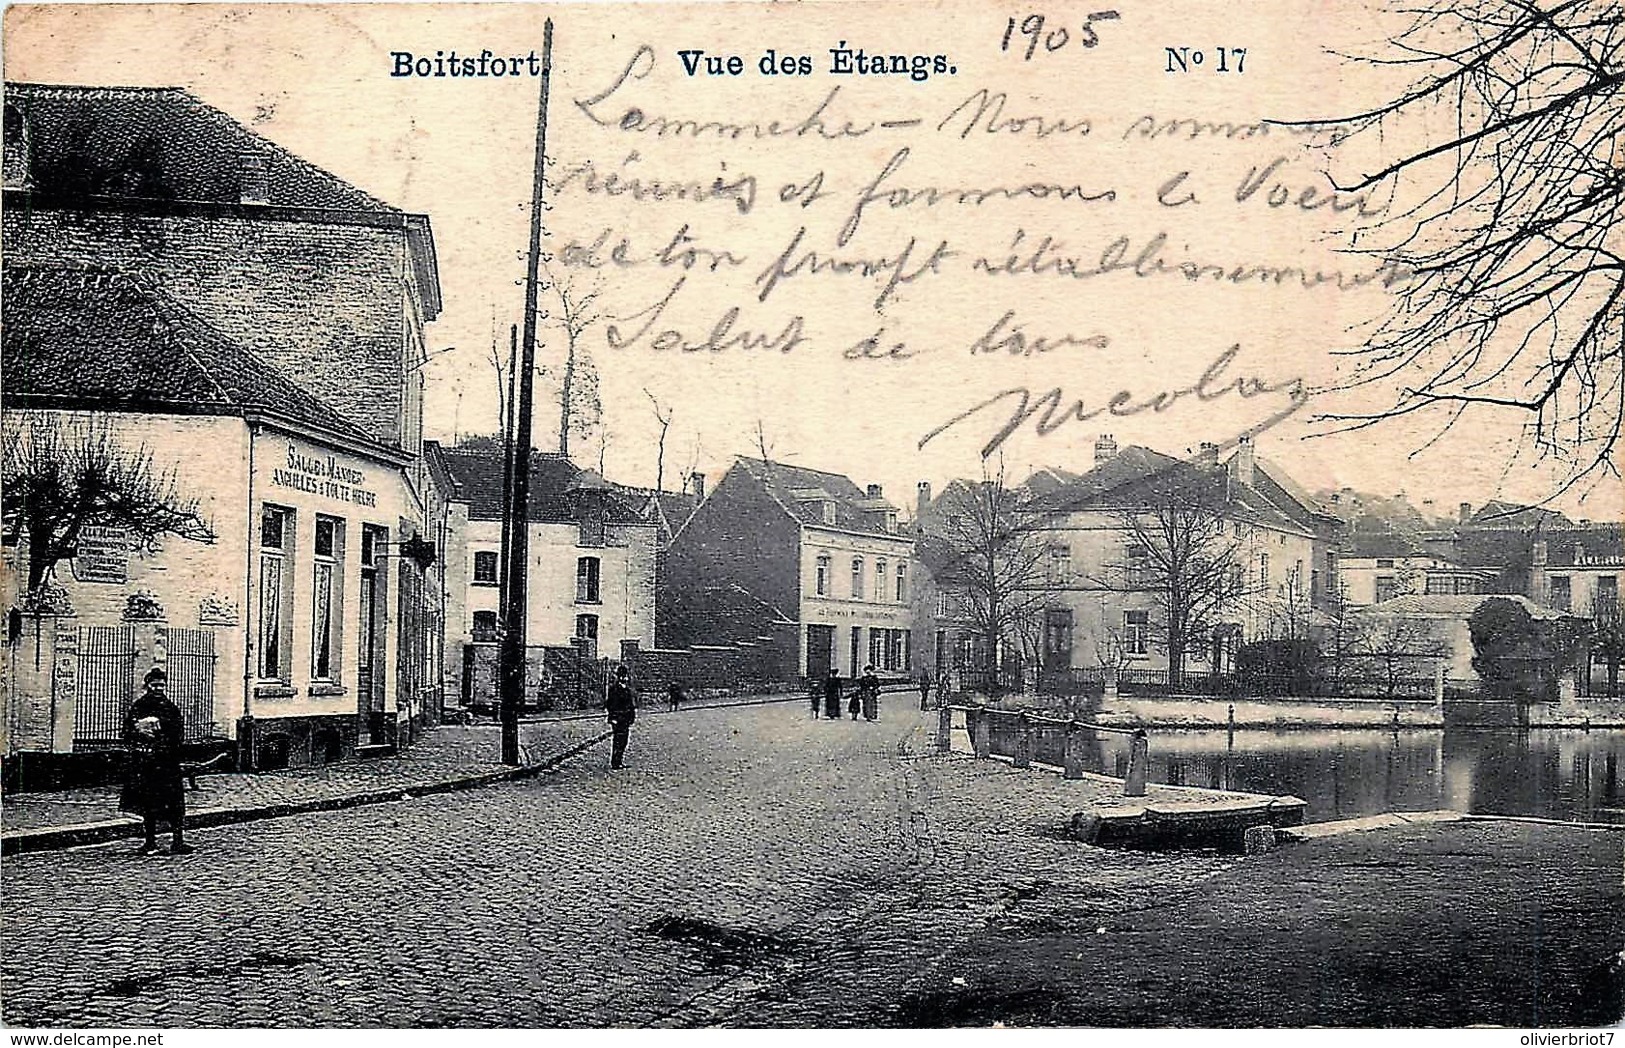 1905
Boitsfort. Vue des Étangs. Nº 17
Lammeke – Nous sommes
réunis et formons le Voeu
de ton prompt rétablissement
Salut de tous
Nicolas
SALLE À MANGER
ANGUILLES À TOUTE HEURE
delcampe.net
olivierbriot7